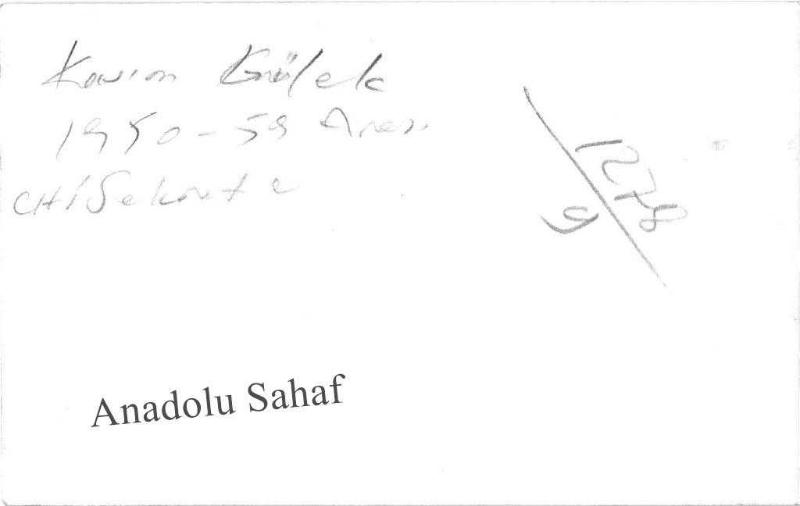 Kasım Gülek
1950-59 Arası
1278
9
Anadolu Sahaf